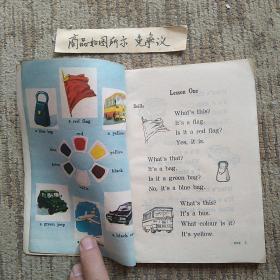 商品如图所示 免争议
a blue bag
a red flag
a yellow
red
blue
yellow
green
black
a green jeep
a black car
Lesson One
Drills
What's this?
It's a flag.
Is it a red flag?
Yes, it is.
What's that?
It's a bag.
Is it a green bag?
No, it's a blue bag.
What's this?
It's a bus.
What colour is it?
It's yellow.